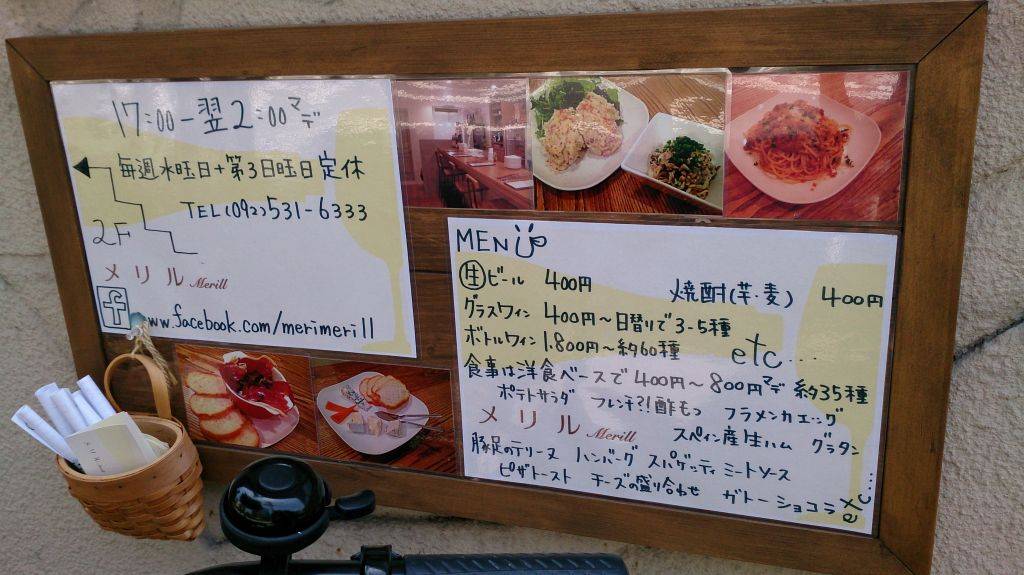 17:00-翌2:00マデ
毎週水曜日+第3日曜日定休
TEL(092)531-6333
2F
メリル Merill
f
www.facebook.com/merimerill
MENU
生ビール 400円
焼酎(芋・麦) 400円
グラスワイン 400円〜日替りで3-5種
ボトルワイン 1.800円〜約60種
etc...
食事は洋食ベースで400円〜800円マデ 約35種
ポテトサラダ フレンチ?!酢もつ フラメンカエッグ
メリル Merill
スペイン産生ハム グラタン
豚足のテリーヌ ハンバーグ スパゲッティミートソース
ピザトースト チーズの盛り合わせ ガトーショコラ etc...